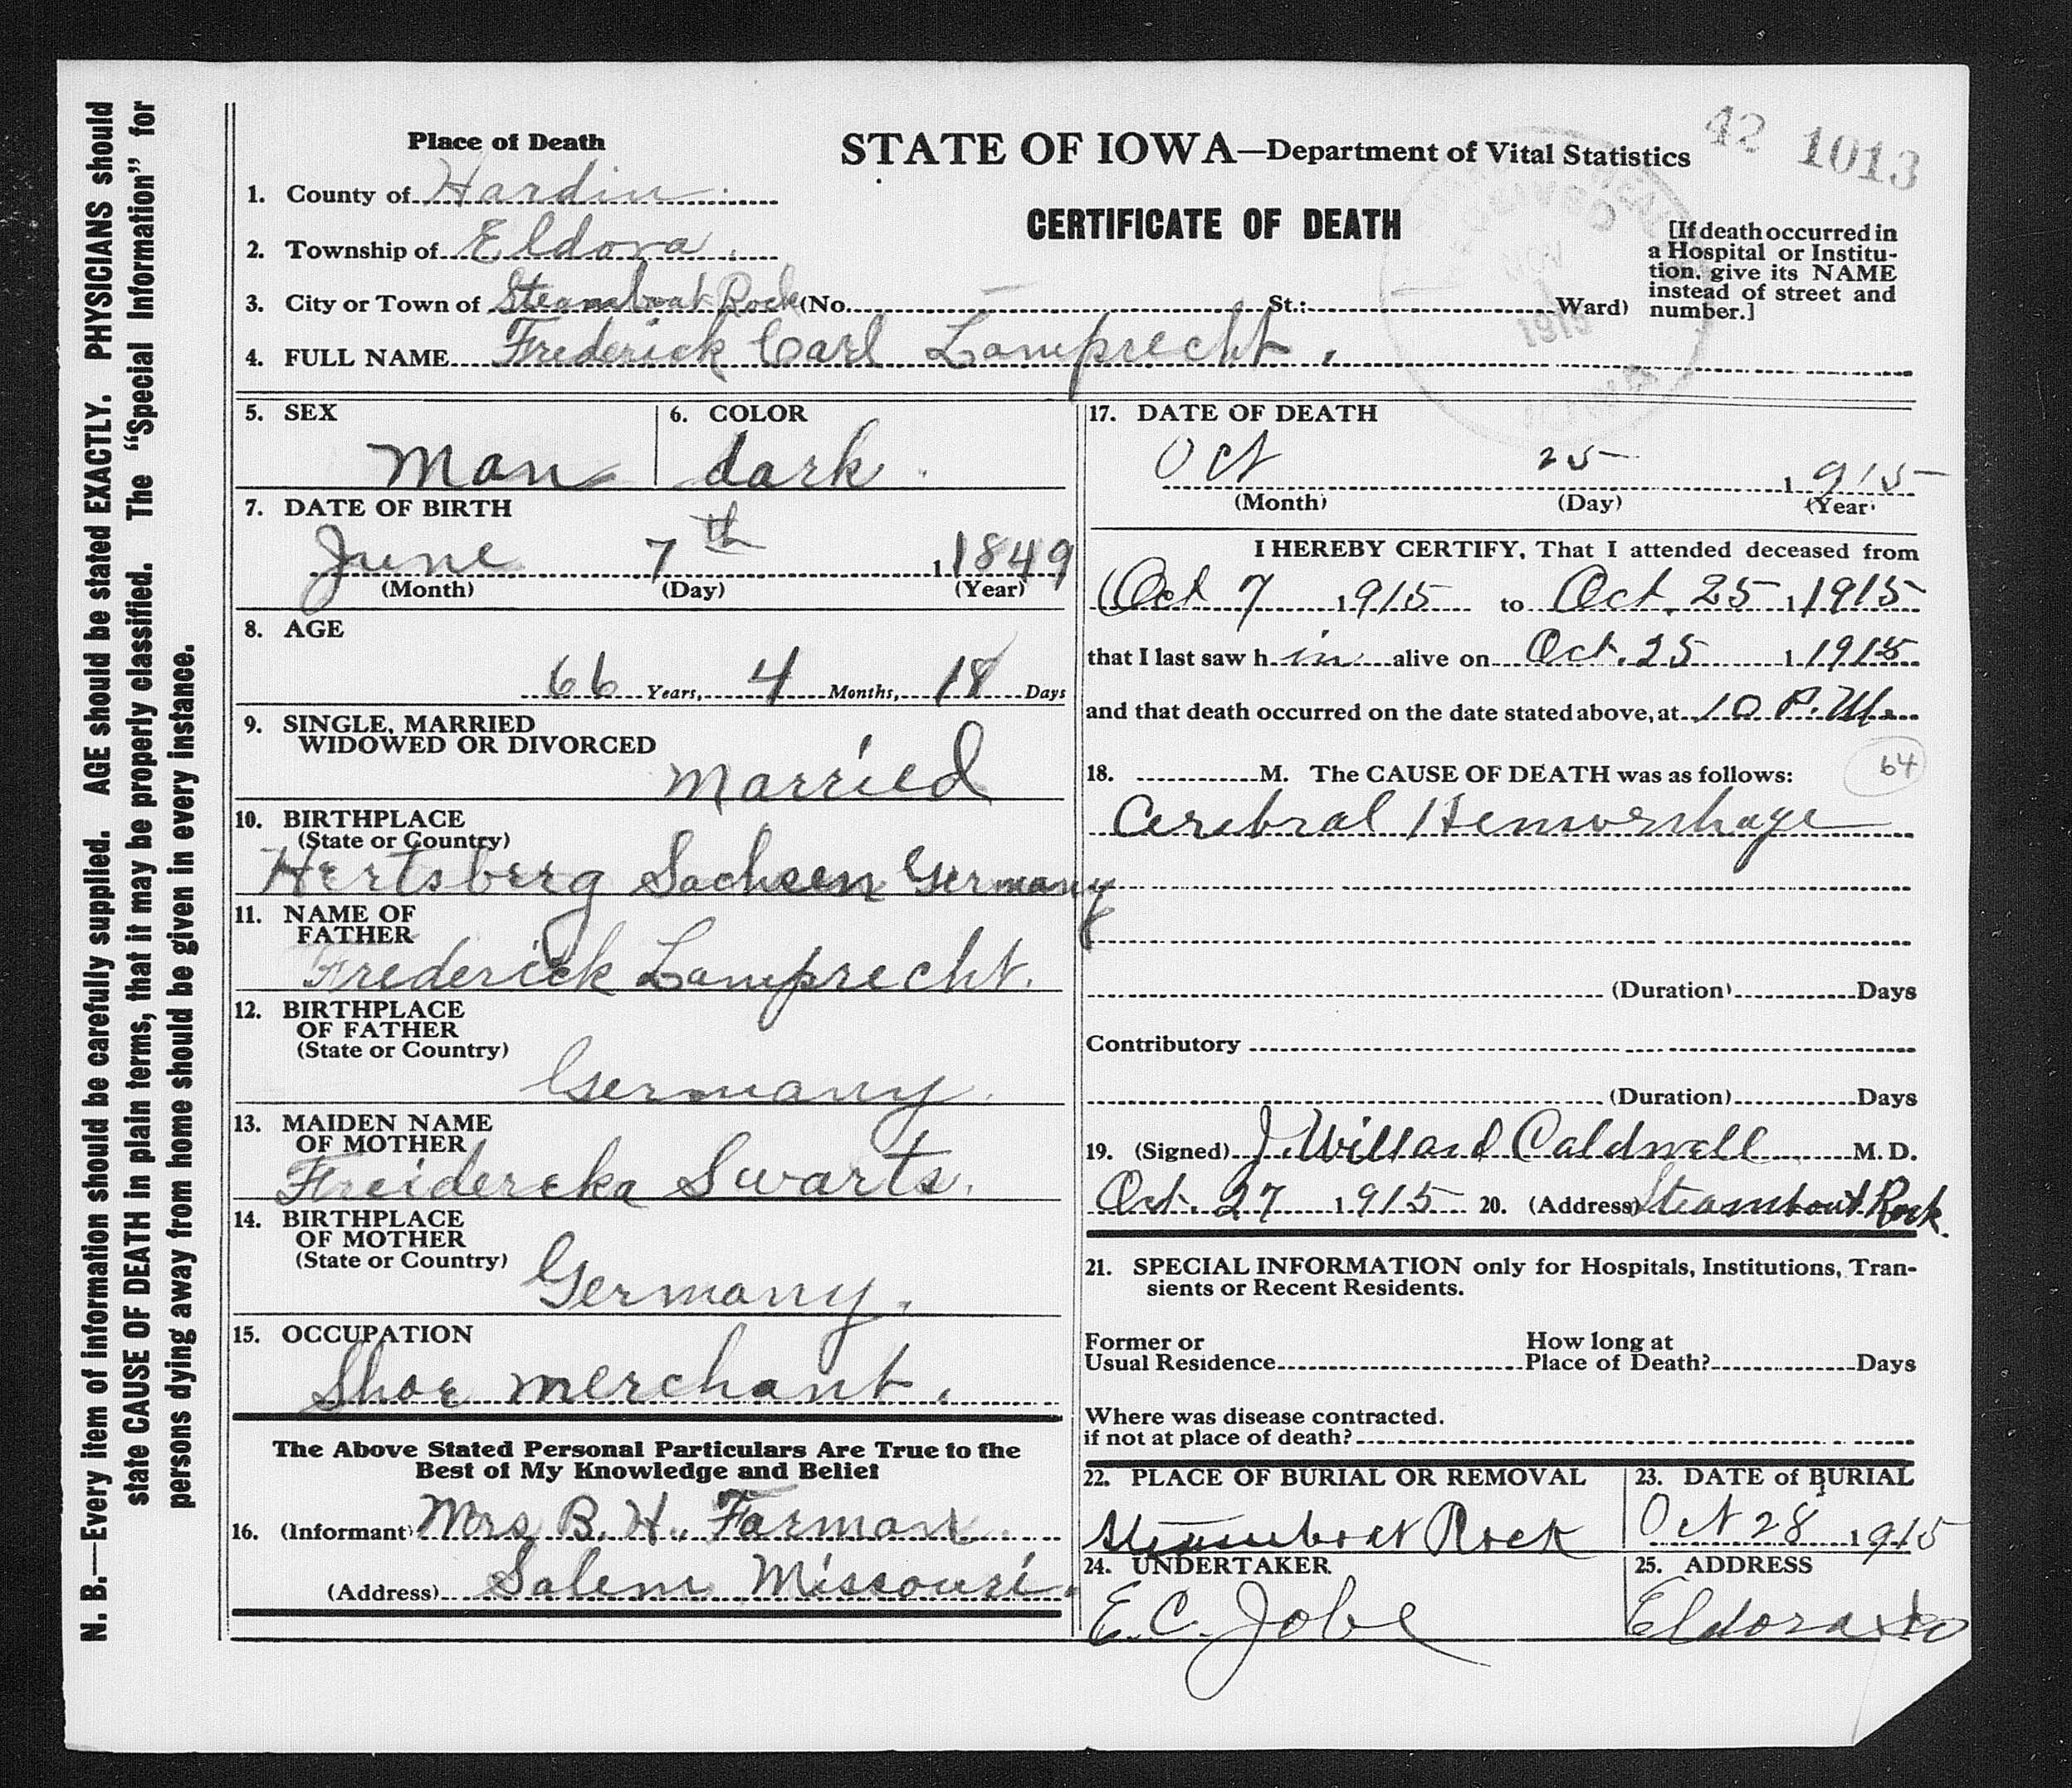 N. B.—Every item of information should be carefully supplied. AGE should be stated EXACTLY. PHYSICIANS should
state CAUSE OF DEATH in plain terms, that it may be properly classified. The "Special Information" for
persons dying away from home should be given in every instance.
42 1013
Place of Death
STATE OF IOWA—Department of Vital Statistics
CERTIFICATE OF DEATH
1. County of Hardin
2. Township of Eldora.
3. City or Town of Steamboat Rock (No. — St.; Ward)
[If death occurred in
a Hospital or Institu-
tion, give its NAME
instead of street and
number.]
4. FULL NAME Frederick Carl Lamprecht.
5. SEX
Man
6. COLOR
dark.
7. DATE OF BIRTH
June 7th 1 1849
(Month) (Day) (Year)
8. AGE
66 Years, 4 Months, 18 Days
9. SINGLE, MARRIED
WIDOWED OR DIVORCED
Married
10. BIRTHPLACE
(State or Country)
Hertsberg Sachsen Germany
11. NAME OF
FATHER
Frederick Lamprecht.
12. BIRTHPLACE
OF FATHER
(State or Country)
Germany.
13. MAIDEN NAME
OF MOTHER
Freidereka Swarts.
14. BIRTHPLACE
OF MOTHER
(State or Country)
Germany.
15. OCCUPATION
Shoe merchant.
The Above Stated Personal Particulars Are True to the
Best of My Knowledge and Belief
16. (Informant) Mrs B. H. Farman
(Address) Salem Missouri.
17. DATE OF DEATH
Oct 25 1915
(Month) (Day) (Year)
I HEREBY CERTIFY, That I attended deceased from
Oct 7 1915 to Oct. 25 1 1915
that I last saw h im alive on Oct. 25 1 1915
and that death occurred on the date stated above, at 10 P.M.
18. M. The CAUSE OF DEATH was as follows:
64
Cerebral Hemorrhage
(Duration) Days
Contributory
(Duration) Days
19. (Signed) J. Willard Caldwell M. D.
Oct. 27 1915 20. (Address) Steamboat Rock.
21. SPECIAL INFORMATION only for Hospitals, Institutions, Tran-
sients or Recent Residents.
Former or
Usual Residence
How long at
Place of Death? Days
Where was disease contracted.
if not at place of death?
22. PLACE OF BURIAL OR REMOVAL
Steamboat Rock
23. DATE of BURIAL
Oct 28 1915
24. UNDERTAKER
E. C. Jobe
25. ADDRESS
Eldora